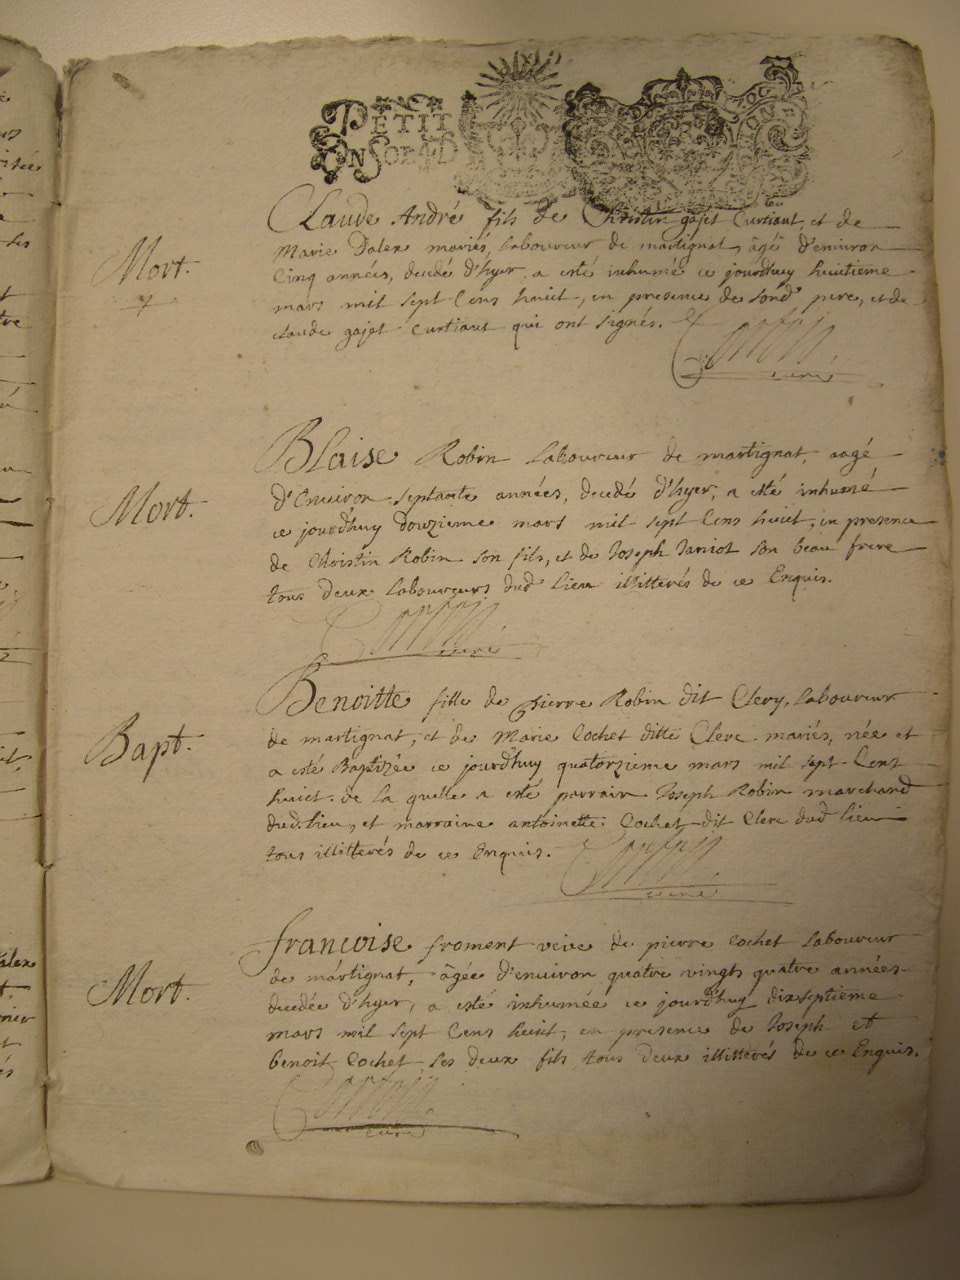 PETIT
ON SOLS D
Claude André fils de Christin gajet Curtiaut, et de
Marie Dalex mariés, laboureur de martignat, âgé d'environ
Cinq années, decedé d'hyer, a esté inhumé ce jourd'huy huitieme
Mort.
mars mil sept Cens huict, en presence de sond. pere, et de
claude gajet Curtiaut qui ont signés.
curé
Blaise Robin Laboureur de martignat, aagé
d'Environ septante années, decedé d'hyer, a esté inhumé
Mort.
ce jourd'huy douzieme mars mil sept Cens huict, en presence
de Christin Robin son fils, et de Joseph Janiot son beau frere
tous deux Laboureurs dud. Lieu illitterés de ce Enquis.
curé
Benoitte fille de Pierre Robin dit Clery, Laboureur
de martignat, et de Marie Cochet ditte Clerc mariés, née et
Bapt.
a esté Baptizée ce jourd'huy quatorzieme mars mil sept Cens
huict. de la quelle a esté parrain Joseph Robin marchand
dud. lieu, et marraine antoinette Cochet dit Clerc dud. lieu
tous illitterés de ce Enquis.
curé
francoise froment veve de pierre Cochet Laboureur
de mártignat, âgée d'environ quatre vingts quatre années
Mort.
decedée d'hyer, a esté inhumée ce jourd'huy dixseptieme
mars mil sept Cens huict, en presence de Joseph et
benoit Cochet ses deux fils tous deux illitterés de ce Enquis.
curé